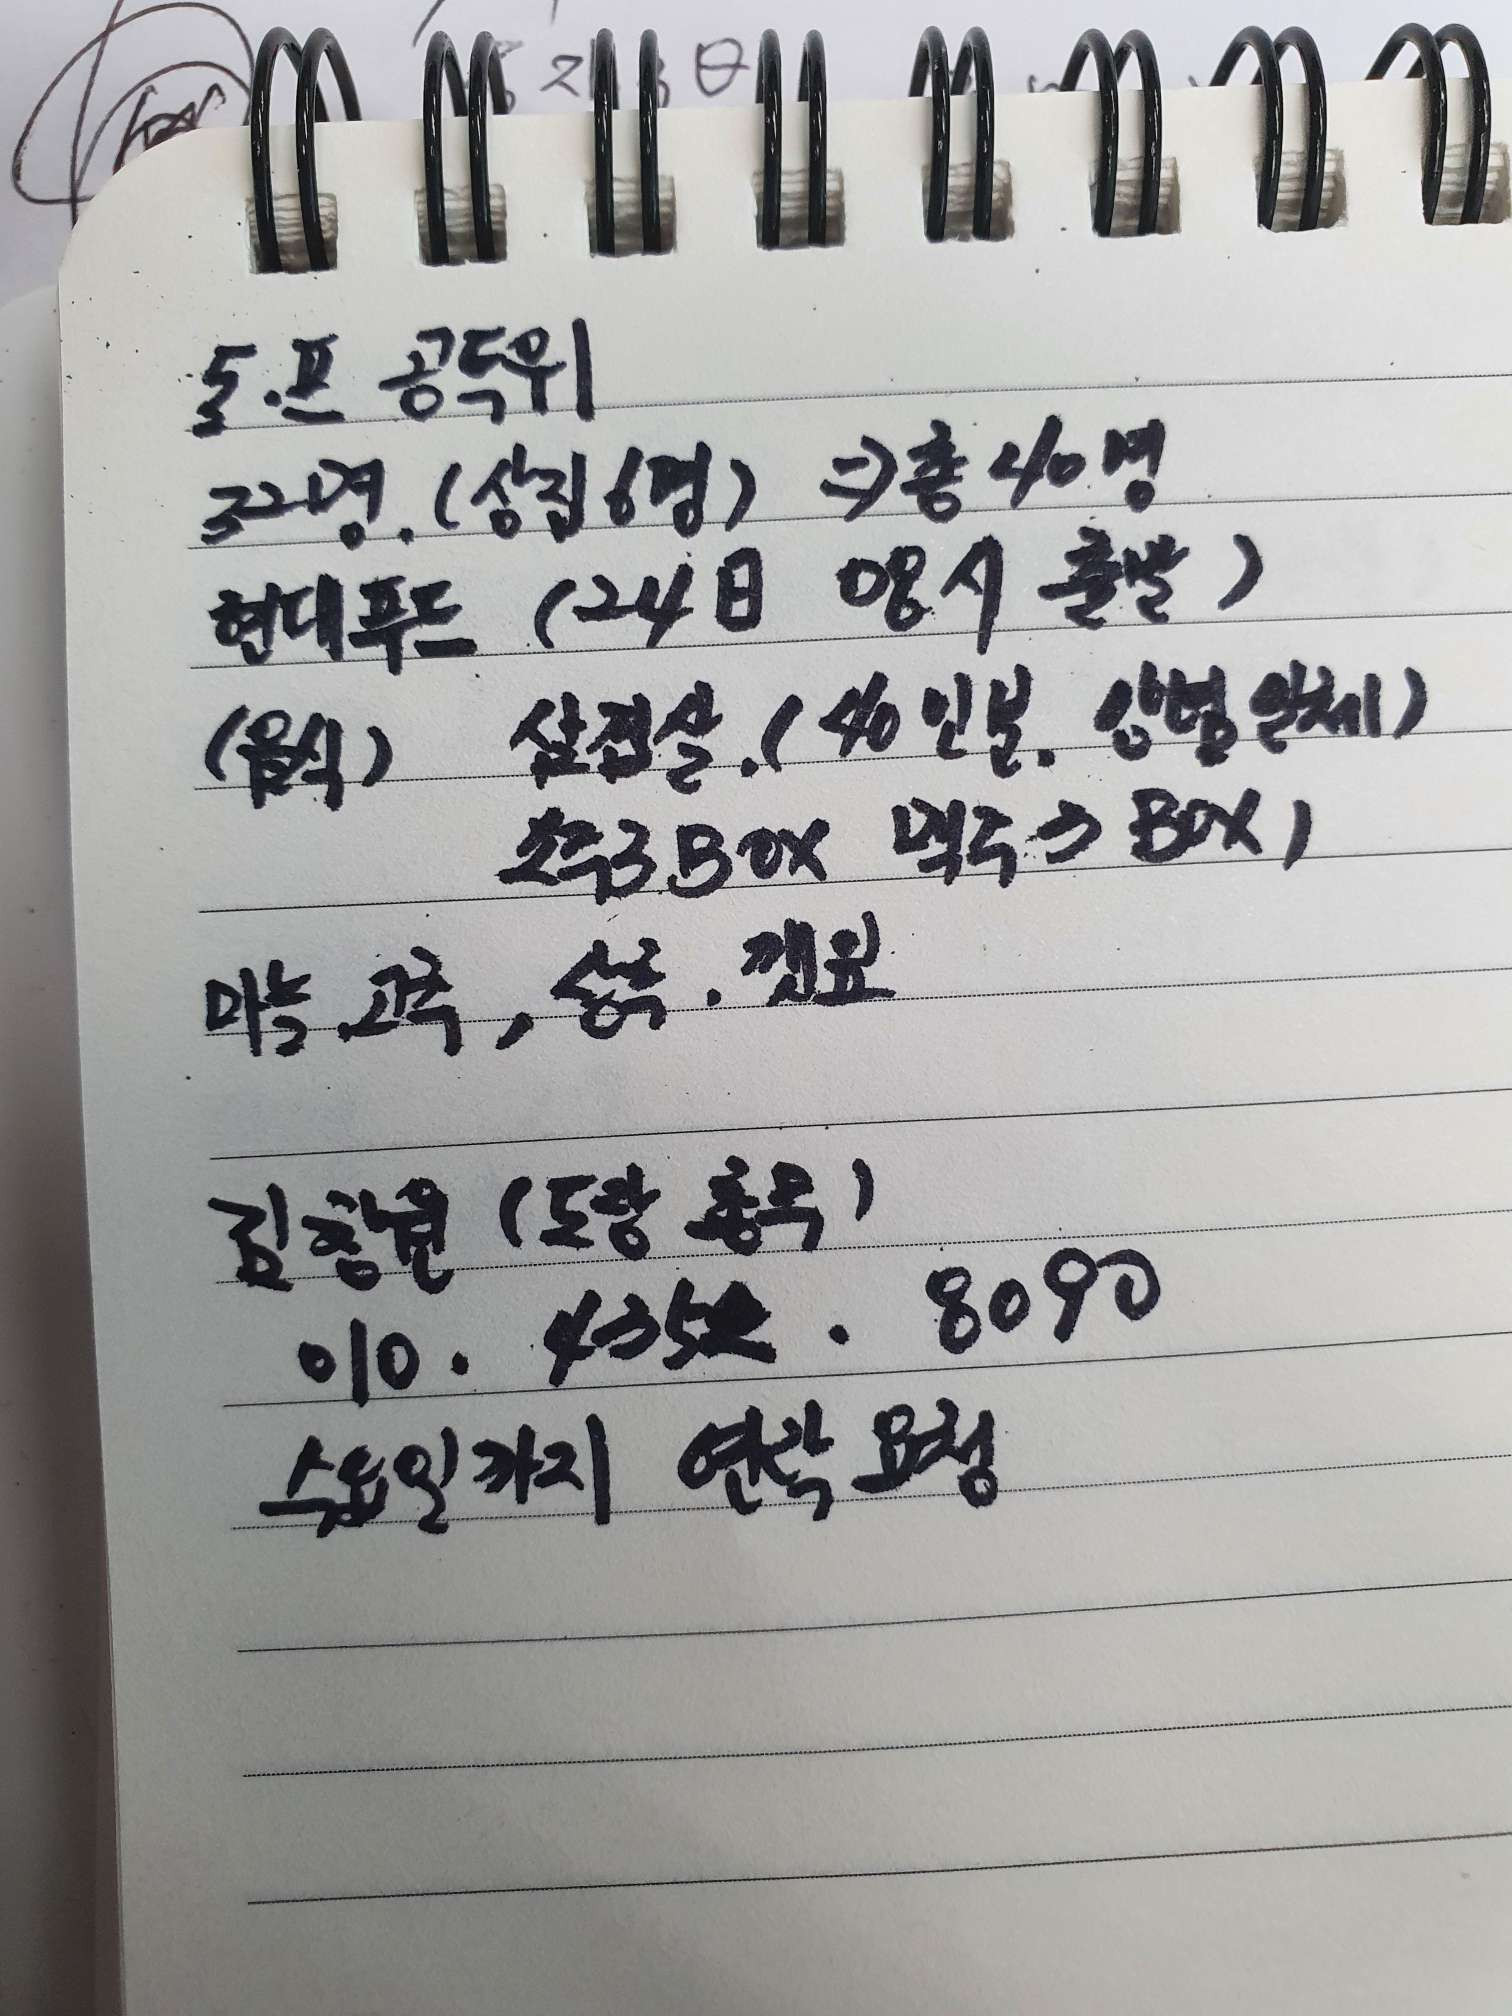 도.프 공득위
32명.(상집6명) ⇒총40명
현대푸드 (24日 08시 출발)
(음식) 삼겹살.(40인분. 쌈별일체)
소주3BOX 맥주3BOX)
마늘.고추, 상추. 깻잎
김창열 (도장 총무)
010. 435. 8090
수요일까지 연락요청